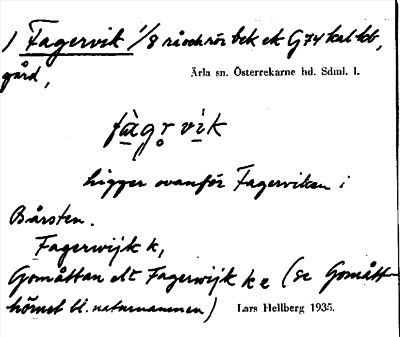 1 Fagervik 1/8 rå och rör bek ek G74 kal kob,
gård,
Ärla sn. Österrekarne hd. Sdml. l.
fàgr vìk
ligger ovanför Fagerviken i
Bårsten.
Fagerwijk k,
Gomåttan elt Fagerwijk k e (se Gomått-
hörnet bl. naturnamnen)
Lars Hellberg 1935.